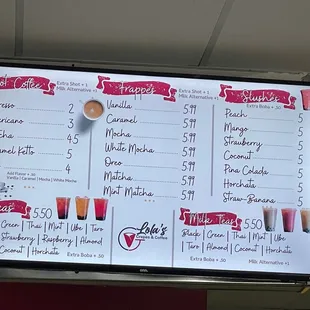 Hot Coffee
Extra Shot + 1
Milk Alternative +1
2
3
4.5
5
5
Add Flavor + .50
Vanilla | Caramel | Mocha | White Mocha
Frappes
Extra Shot + 1
Milk Alternative +1
Vanilla 5.99
Caramel 5.99
Mocha 5.99
White Mocha 5.99
Oreo 5.99
Matcha 5.99
Mint Matcha 5.99
Slushes
Extra Boba + .50
Peach 5
Mango 5
Strawberry 5
Coconut 5
Pina Colada 5
Horchata 5
Straw-Banana 5
5.50
Green | Thai | Mint | Ube | Taro
Strawberry | Raspberry | Almond
Coconut | Horchata
Extra Boba + .50
Lola's
Crepes & Coffee
Milk Teas 5.50
Black | Green | Thai | Mint | Ube
Taro | Almond | Coconut | Horchata
Extra Boba + .50
Milk Alternative +1